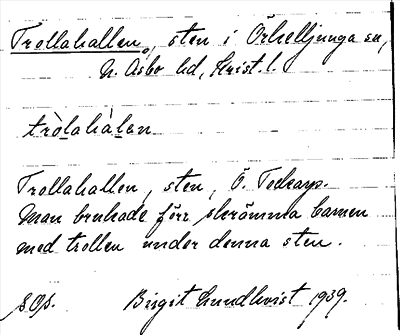 Trollahallen, sten i Örkelljunga sn,
N. Åsbo hd, Krist. l.
tròlahàlen
Trollahallen, sten, Ö.
Man brukade förr skrämma barnen
med trollen under denna sten.
Birgit Lundkvist 1939.